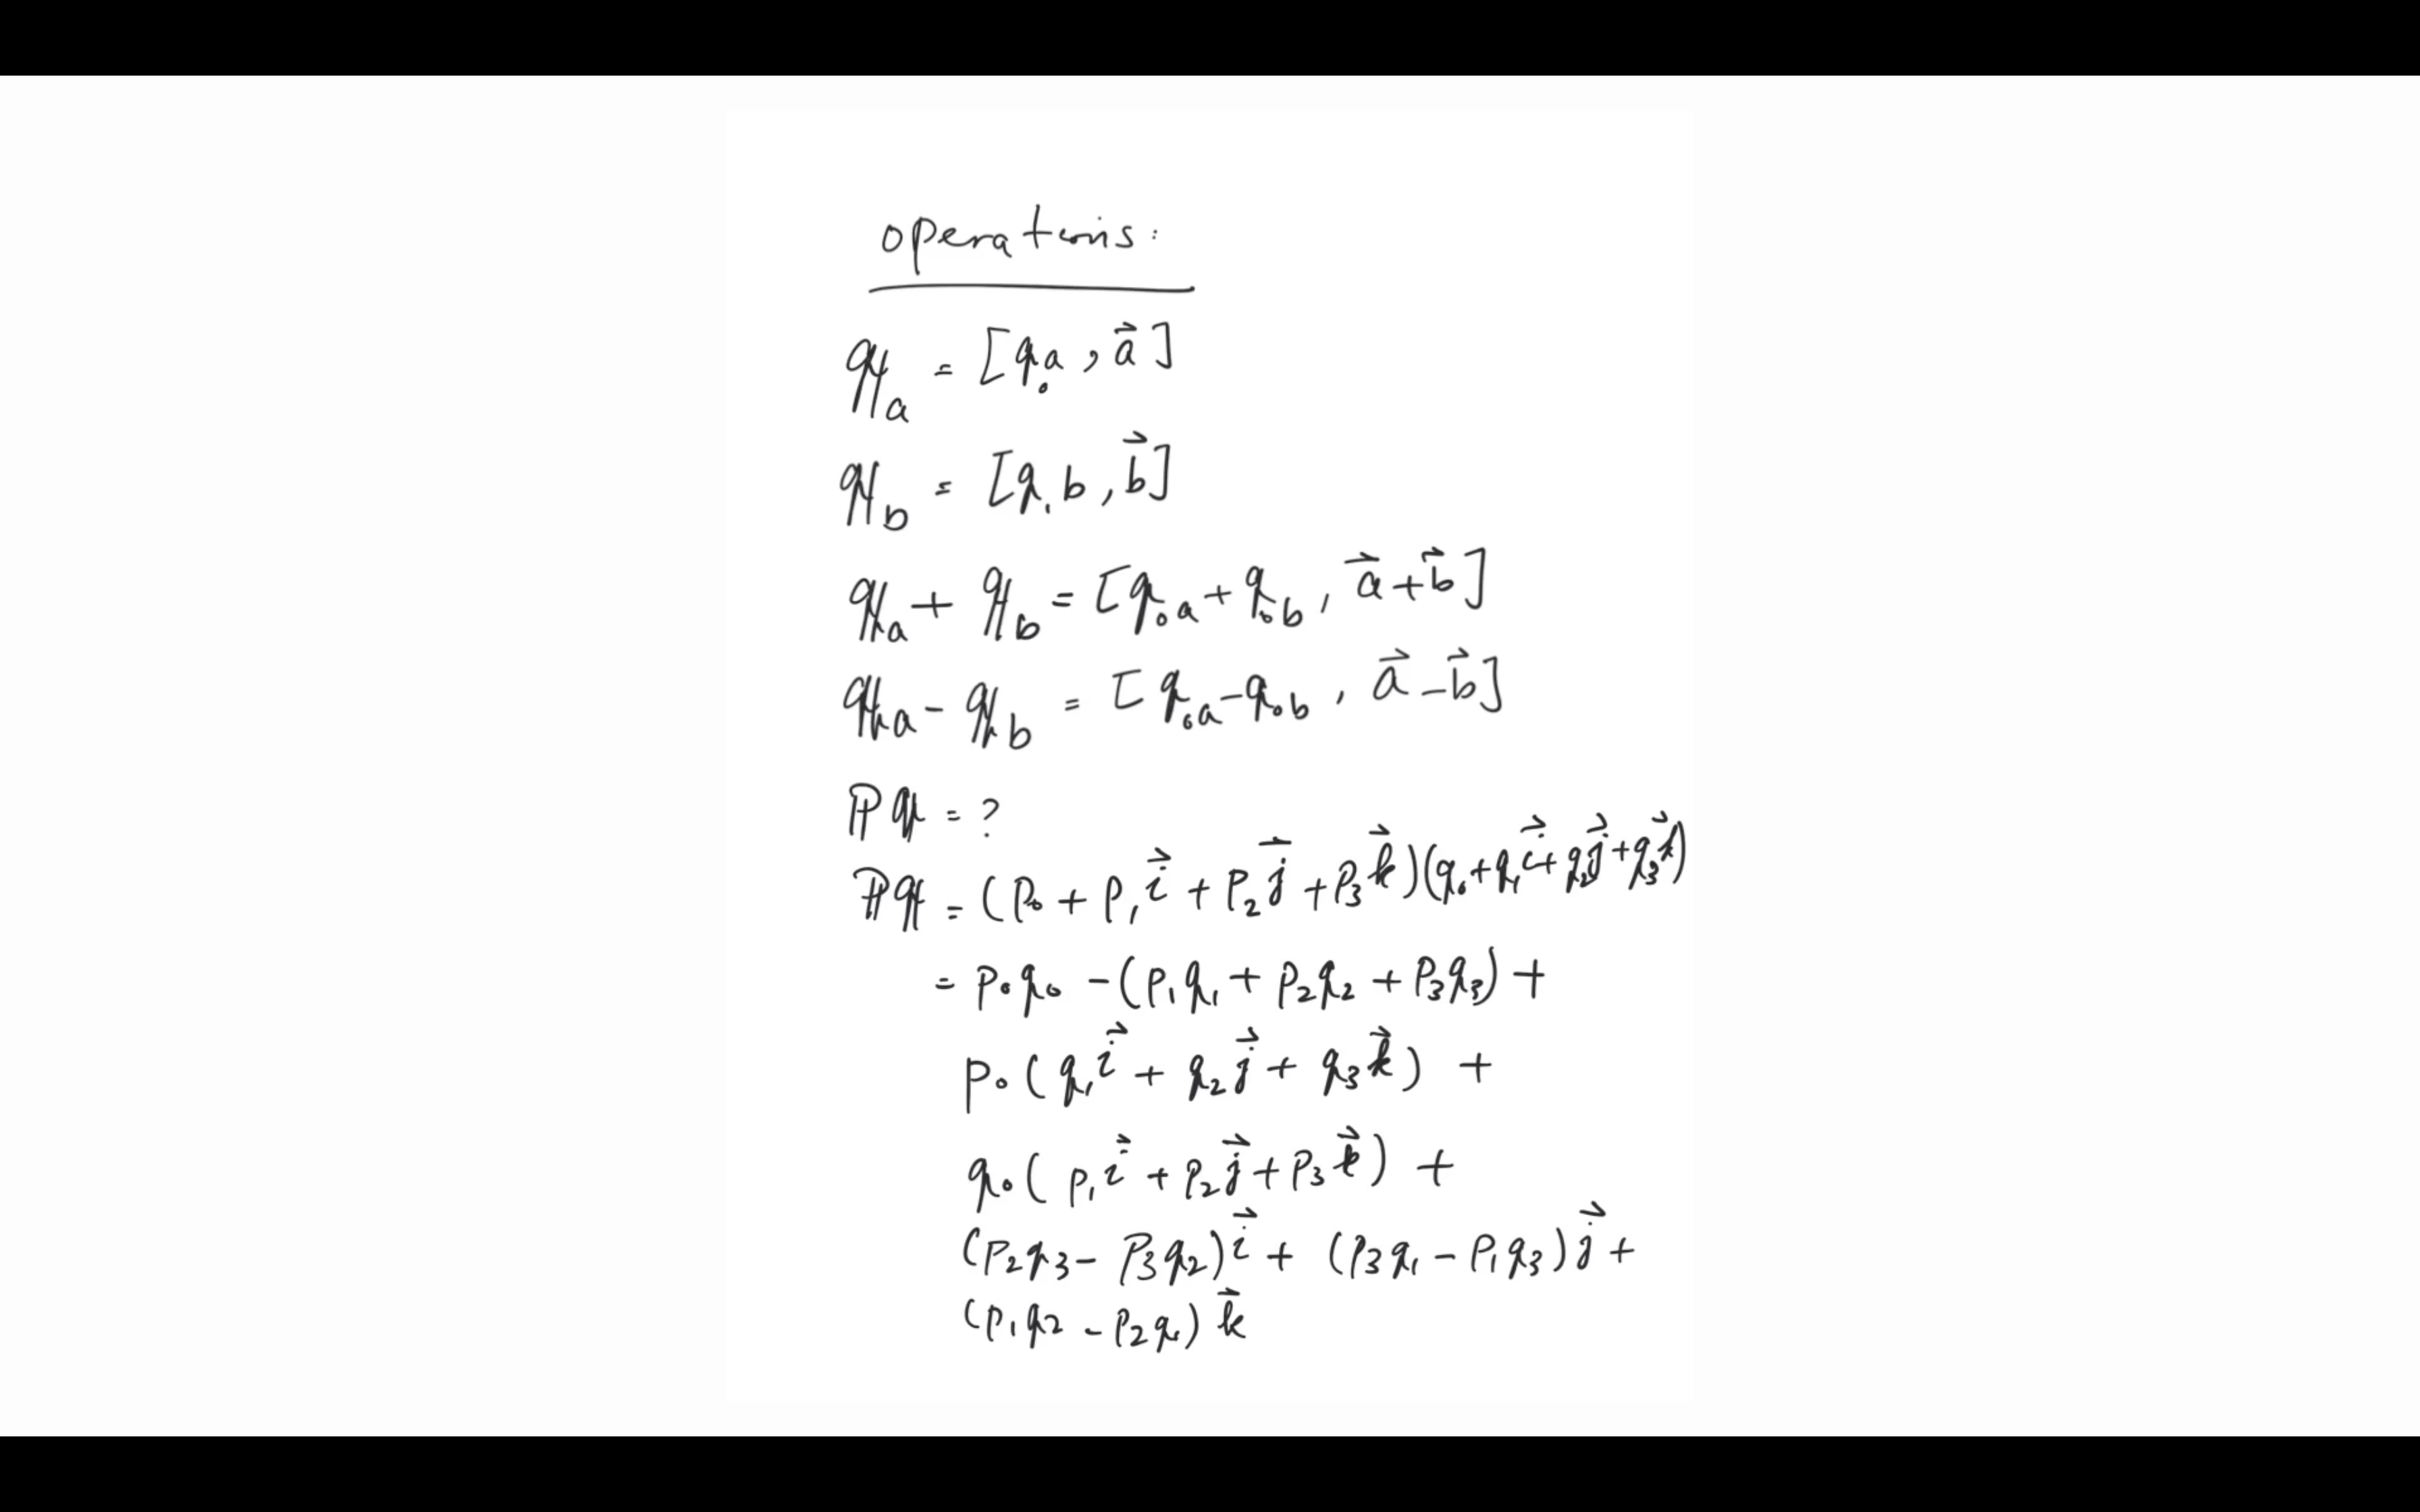 operations:
q_a = [q_0a, \vec{a}]
q_b = [q_1b, \vec{b}]
q_a + q_b = [q_0a + q_0b, \vec{a} + \vec{b}]
q_a - q_b = [q_0a - q_0b, \vec{a} - \vec{b}]
Pq = ?
Pq = (P_0 + P_1\vec{i} + P_2\vec{j} + P_3\vec{k})(q_0 + q_1\vec{i} + q_2\vec{j} + q_3\vec{k})
= P_0q_0 - (P_1q_1 + P_2q_2 + P_3q_3) +
P_0(q_1\vec{i} + q_2\vec{j} + q_3\vec{k}) +
q_0(P_1\vec{i} + P_2\vec{j} + P_3\vec{k}) +
(P_2q_3 - P_3q_2)\vec{i} + (P_3q_1 - P_1q_3)\vec{j} +
(P_1q_2 - P_2q_1)\vec{k}